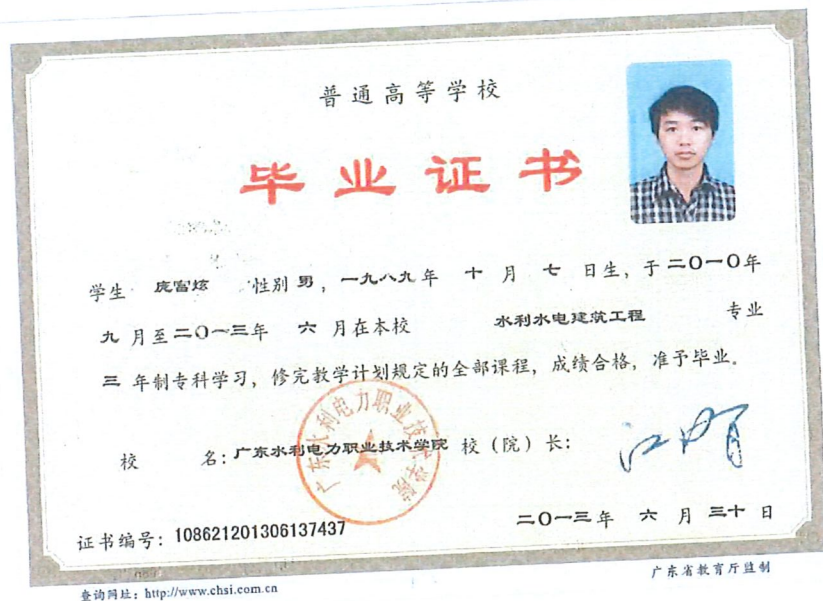 普通高等学校
毕业证书
学生 庞富炫 性别 男，一九八九年 十 月 七 日生，于二〇一〇年
九 月至二〇一三年 六 月在本校 水利水电建筑工程 专业
三 年制专科学习，修完教学计划规定的全部课程，成绩合格，准予毕业。
校 名：广东水利电力职业技术学院 校（院）长：
广东水利电力职业技术学院
二〇一三年 六 月 三十 日
证书编号：108621201306137437
广东省教育厅监制
查询网址：http://www.chsi.com.cn